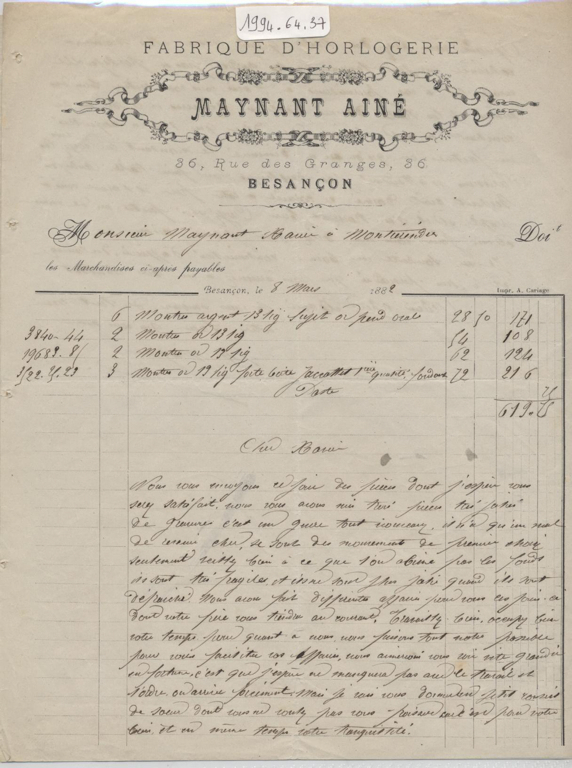 1994.64.37
FABRIQUE D'HORLOGERIE
MAYNANT AINÉ
36, Rue des Granges, 36
BESANÇON
Monsieur Maynant Xavier à Doit
les Marchandises ci-après payables
Besançon, le 8 Mars 1882 Impr. A. Cariage
6 Montres argent 13 lig sujet or fond ovale 28 50 171
3840-44 2 Montres or 13 lig 54 108
19683. 85 2 Montres or 13 lig 62 124
3522. 25. 23 3 Montres or 13 lig forte boite 1ère qualité 72 216
Porte 75
619.75
Cher Xavier
Nous vous envoyons ce jour des pièces dont j'espère vous
serez satisfait, nous vous avons mis trois pièces très jolies
de gravures c'est un genre tout nouveau, il n'a qu'un mal
de revenir cher, ce sont des mouvements de premier choix
seulement veillez bien à ce que l'on abime pas les fonds
ils sont très fragiles, et ils ne sont plus jolis quand ils sont
Nous avons fait différentes affaires pour vous ces jours-ci
dont votre père vous tiendra au courant, Travaillez bien, occupez bien
votre temps pour quant à nous nous faisons tout notre possible
pour vous faciliter vos affaires, nous aimerions vous voir vite grandir
en fortune, c'est que j'espère ne manquera pas avec le travail et
l'ordre on arrive forcément. Mais je vais vous donner un petit conseil
de sœur dont vous ne voulez pas vous pour votre
bien, et en même temps votre tranquillité.